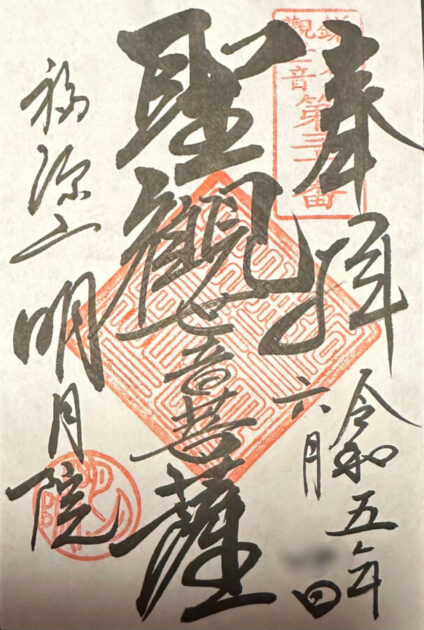 奉拝
令和五年
六月 日
聖觀世音菩薩
福源山
明月院
觀音
第三十番